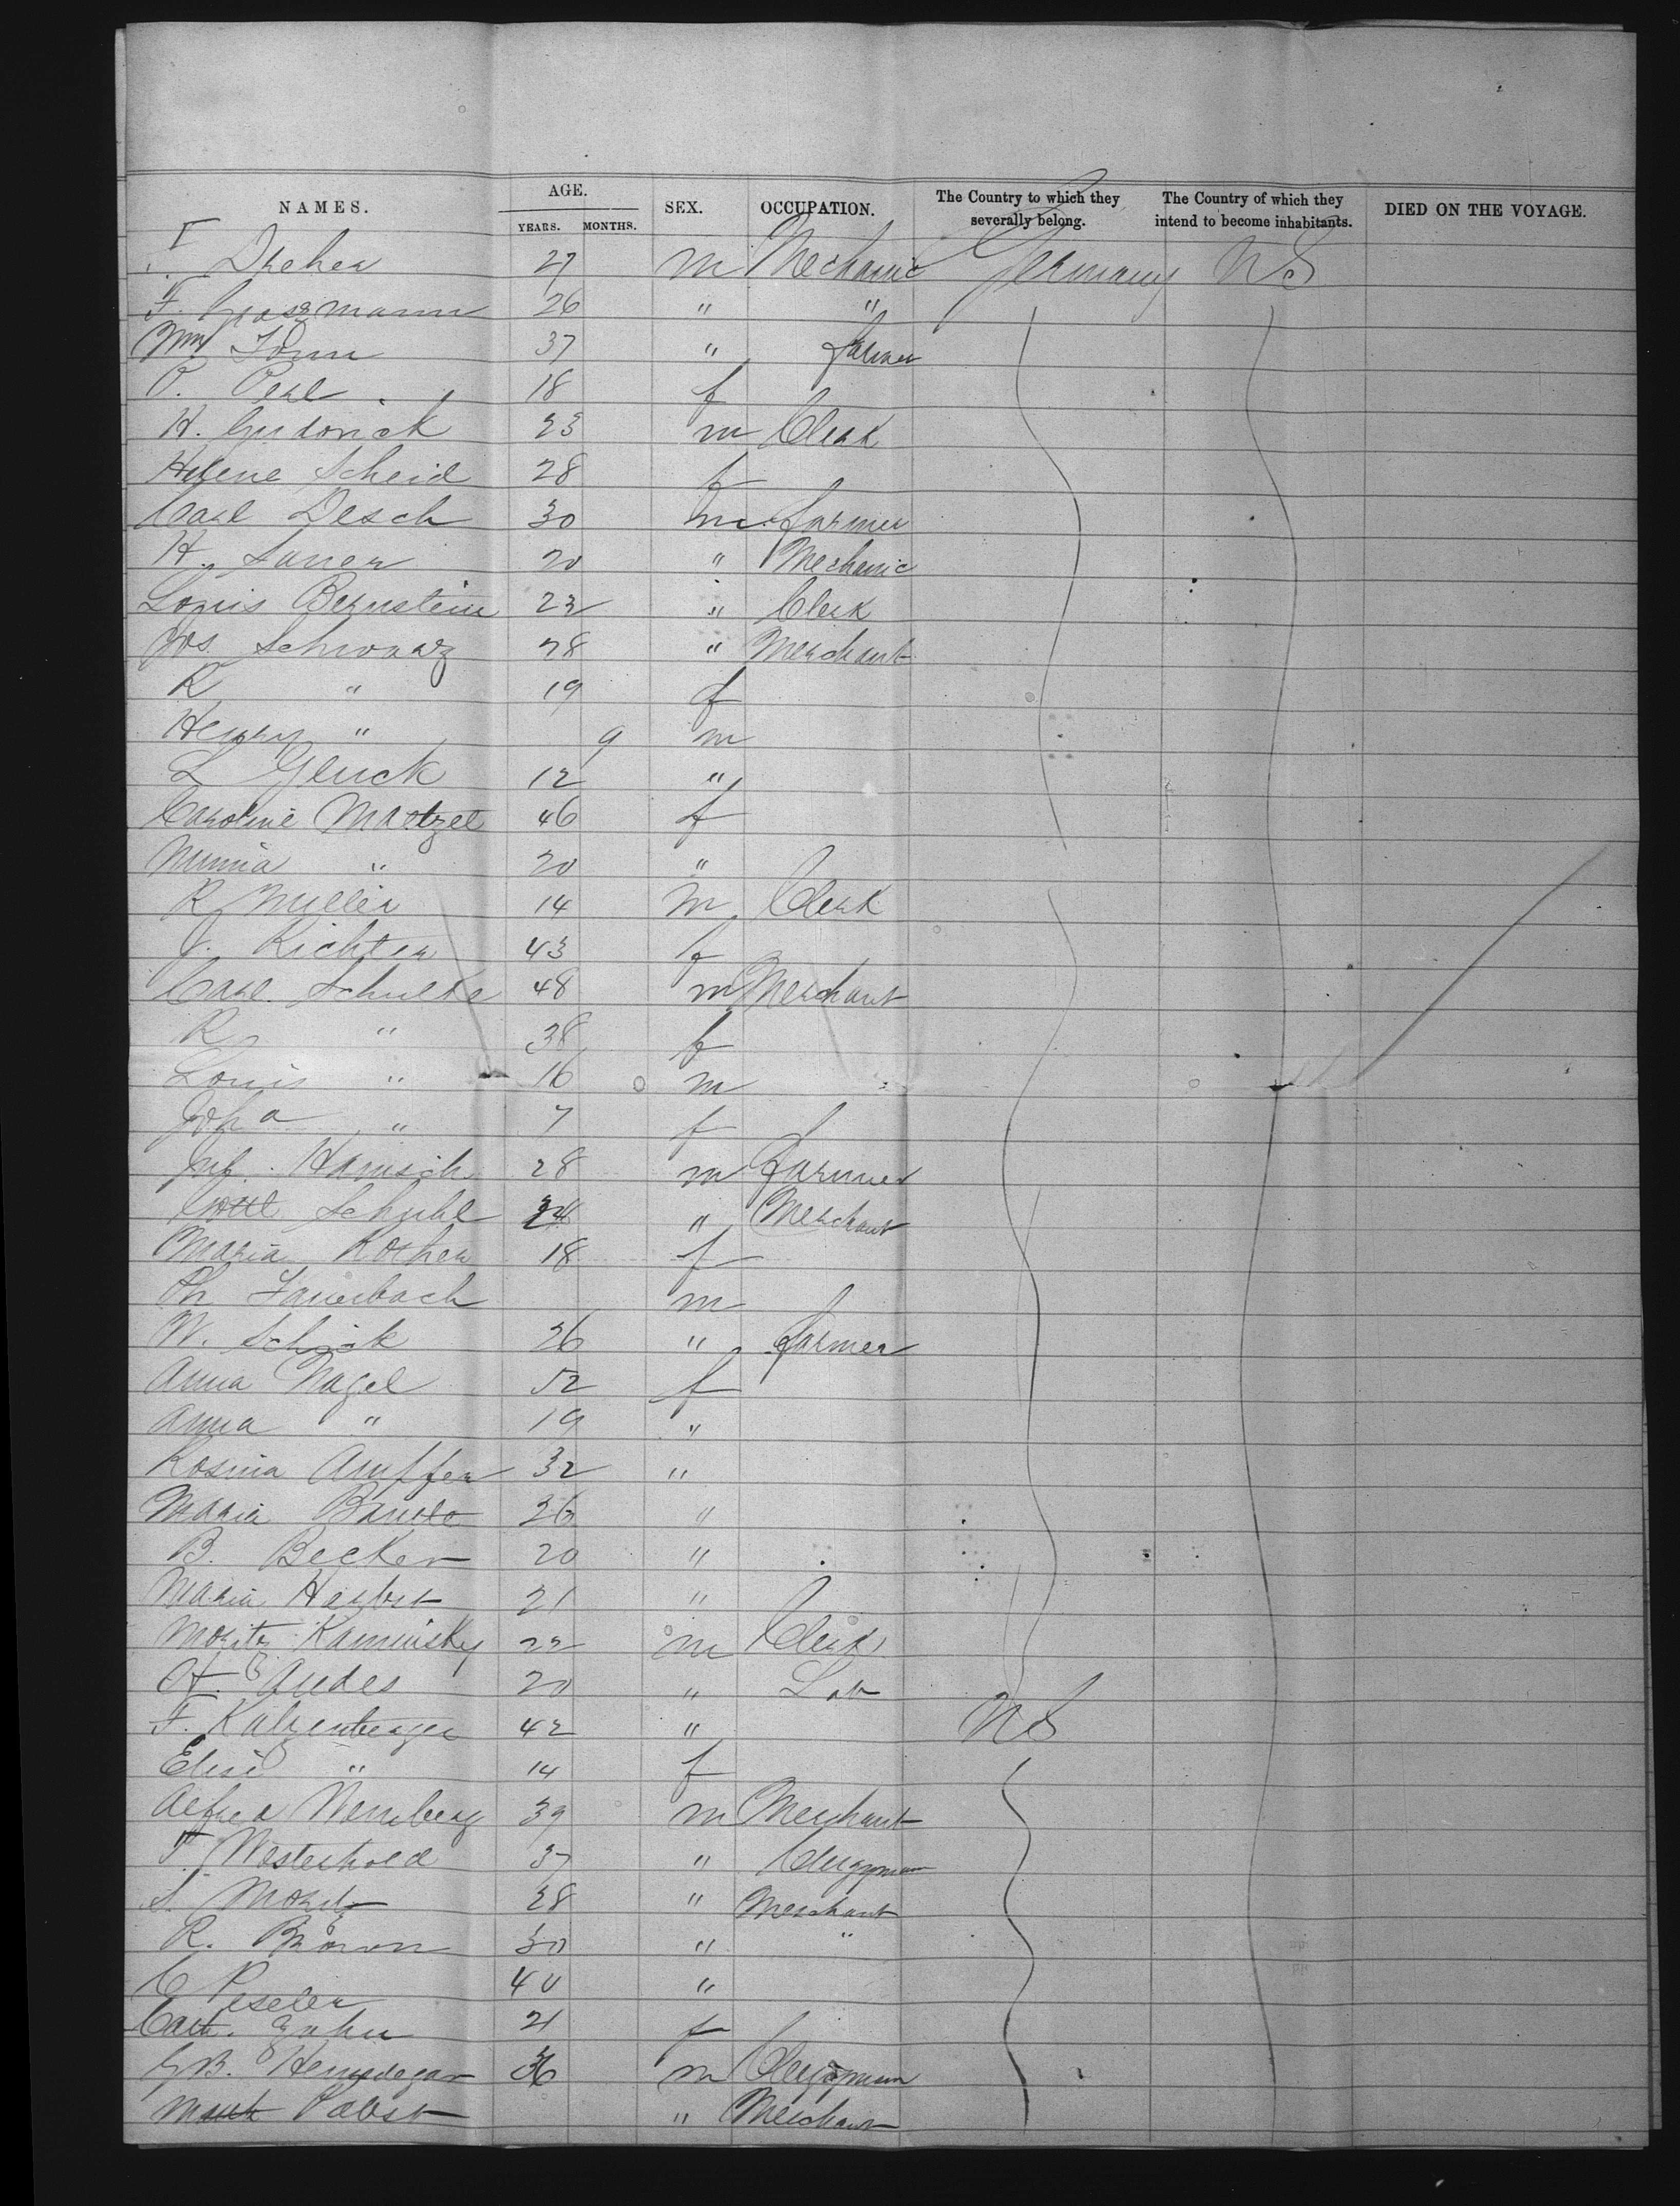 NAMES. AGE. YEARS. MONTHS. SEX. OCCUPATION. The Country to which they severally belong. The Country of which they intend to become inhabitants. DIED ON THE VOYAGE.
Dreher 27 m Mechanic Germany U S
F. Groszmann 26 " "
Wm 37 " farmer
P. Perl 18 f
H. 23 m Clerk
Helene Scheid 28 f
Carl Desch 30 m farmer
H. Sauer 20 " Mechanic
Louis Bernstein 22 " Clerk
Jos. Schwarz 28 " Merchant
R " 19 f
Henry " 9 m
L Gluck 12 "
Caroline Maetzel 46 f
Minna " 20 "
R Muller 14 m Clerk
J. Richter 43 f
Carl Schulte 48 m Merchant
R " 38 f
Louis " 16 m
Joha " 7 f
28 m farmer
Schuhl 24 " Merchant
Maria Rother 18 f
Ph Lauerbach m
W. Schick 26 " farmer
Anna Nagel 52 f
Anna " 19 "
Rosina 32 "
Maria 26 "
B. Becker 20 "
Maria Herbst 21 "
Moritz Kaminsky 22 m Clerk
Andes 20 " Lab
F. Katzenberger 42 " U S
Elise " 14 f
Alfred Nernberg 39 m Merchant
F. Westerhold 37 " Clergyman
S. Moritz 28 " Merchant
R. 30 " "
C Peseler 40 "
Cath. Zahn 21 f
G B. 36 m Clergyman
Pabst " Merchant